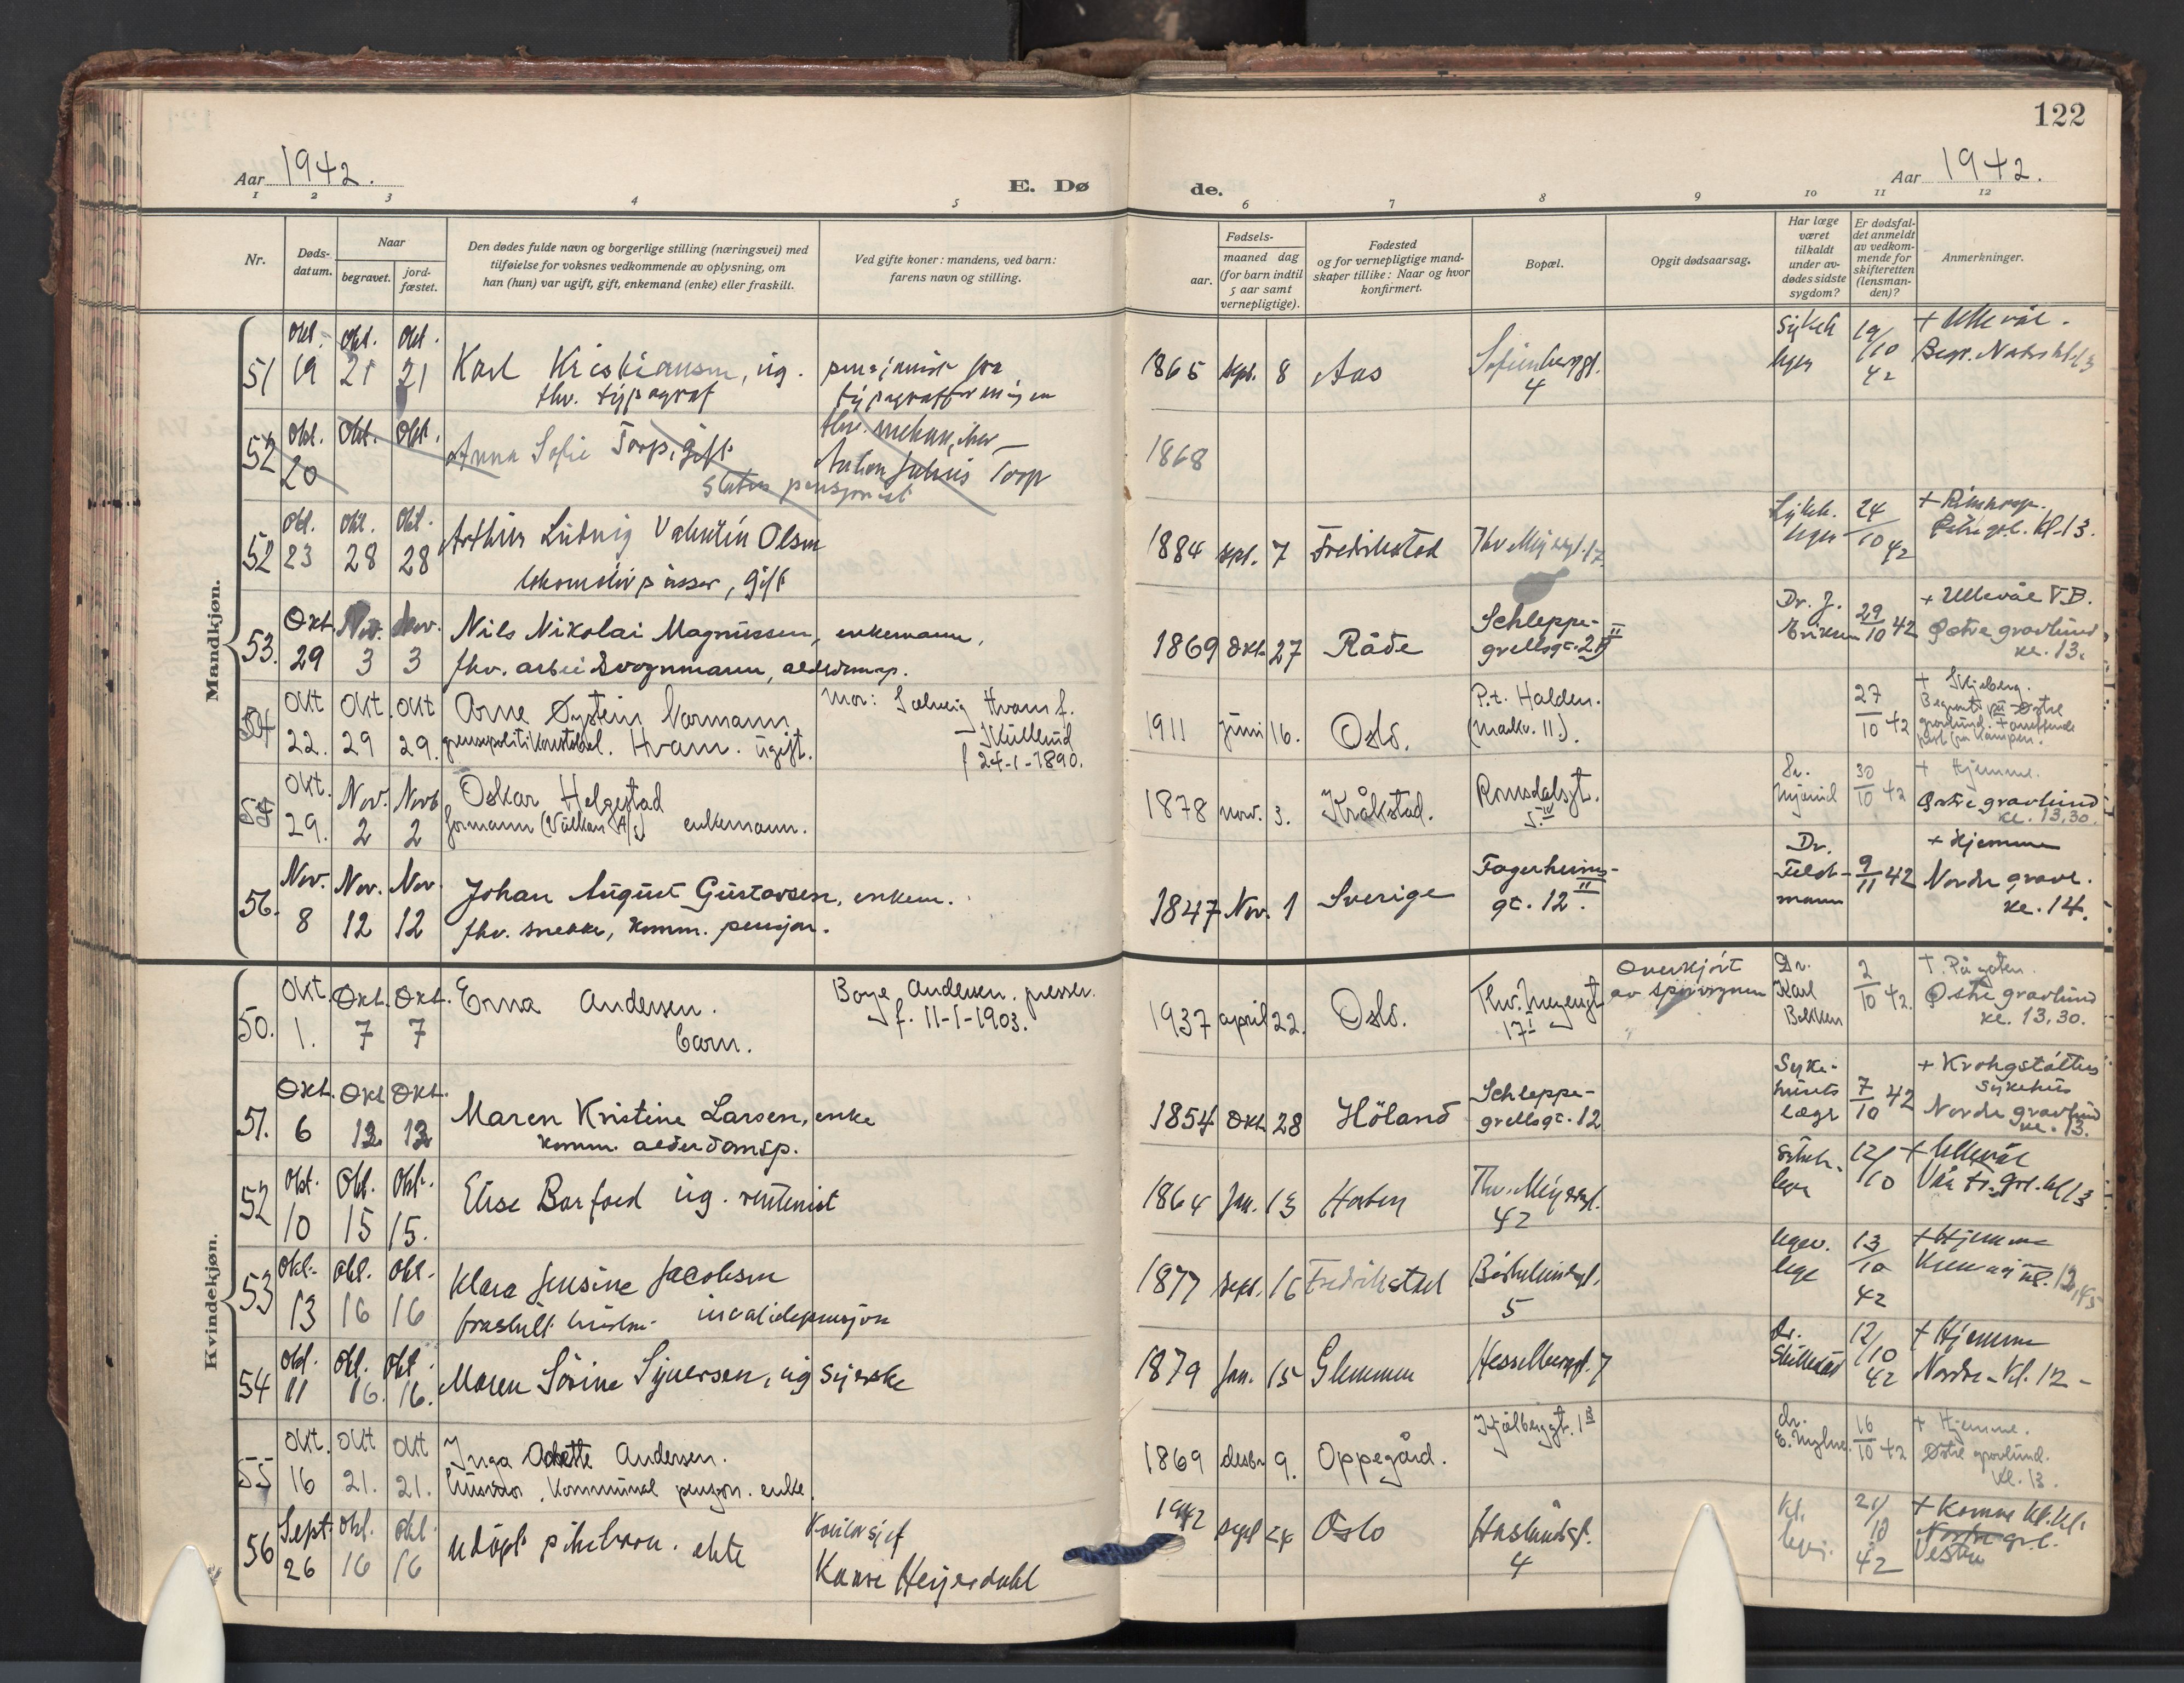 122
Aar 1942.
E. Døde.
Aar 1942.
1 2 3 4 5 6 7 8 9 10 11 12
Nr.
Døds-
datum.
Naar
begravet.
jord-
fæstet.
Den dødes fulde navn og borgerlige stilling (næringsvei) med
tilføielse for voksnes vedkommende av oplysning, om
han (hun) var ugift, gift, enkemand (enke) eller fraskilt.
Ved gifte koner: mandens, ved barn:
farens navn og stilling.
Fødsels-
aar.
maaned dag
(for barn indtil
5 aar samt
vernepligtige).
Fødested
og for vernepligtige mand-
skaper tillike: Naar og hvor
konfirmert.
Bopæl.
Opgit dødsaarsag.
Har læge
været
tilkaldt
under av-
dødes sidste
sygdom?
Er dødsfal-
det anmeldt
av vedkom-
mende for
skifteretten
(lensman-
den)?
Anmerkninger.
Mandkjøn.
51 Okt. 19 Okt. 21 Okt. 21
Karl Kristiansen, ug.
fhv. typograf
1865 sept. 8 Aas
4
19/10 42
+ Ullevål.
52 Okt. 20 Okt. Okt.
Anna Sofie Torp, gift
Anton Julius Torp
1868
52 Okt. 23 Okt. 28 Okt. 28
Arthur Ludvig Valentin Olsen
lokomotivpusser, gift
1884 sept. 7 Fredrikstad
24/10 42
kl. 13.
53. Okt. 29 Nov. 3 Nov. 3
Nils Nikolai Magnussen, enkemann,
fhv. arbeidsvognmann, alderdomsp.
1869 Okt. 27 Råde
Schleppe-
grellsgt. 2
Dr. J.
Eriksen
29/10 42
+ Ullevål
Østre gravlund
kl. 13.
54 Okt 22. Okt. 29 Okt 29.
Arne Øystein Normann
grensepolitikonstabel. Hvam. ugift.
Mor: Solveig Hvam f.
f 24-1-1890.
1911 juni 16. Oslo.
P.t. Halden.
27/10 42
+ Skjeberg.
55 Okt. 29. Nov. 2 Nov. 2
Oskar Helgestad
formann (Vulkan A/S) enkemann.
1878 nov. 3. Kråkstad.
Romsdalsgt.
5 IV
30/10 42
+ Hjemme.
Østre gravlund
kl. 13,30.
56. Nov. 8 Nov. 12 Nov. 12
Johan August Gustavsen, enkem.
fhv. snekker, komm. pensjon.
1847 Nov. 1 Sverige
Fagerheims-
gt. 12 II.
Dr.
Feldt-
mann
9/11 42
+ Hjemme
Nordre gravl.
kl. 14.
Kvindekjøn.
50. Okt. 1. Okt. 7 Okt. 7
Erna Andersen.
barn.
Boye Andersen. presser.
f. 11-1-1903.
1937 april 22. Oslo.
Thv. Meyersgt.
17 I
Overkjört
av sporvognen
Dr.
Karl
2/10 42.
+. På gaten.
Østre gravlund
kl. 13,30.
51. Okt. 6 Okt. 13 Okt. 13
Maren Kristine Larsen, enke
komm. alderdomsp.
1854 Okt. 28 Höland
Schleppe-
grellsgt. 12
Syke-
husets
læge
7/10 42
+ Krohgstøttens
sykehus
Nordre gravlund
kl. 13.
52 Okt. 10 Okt. 15 Okt. 15.
Elise Barfoed ug. rentenist
1864 Jan. 13 Horten
Thv. Meyersgt.
42
12/10
+ Ullevål
53 Okt. 13 Okt. 16 Okt. 16
Klara Jensine Jacobsen
fraskilt invalidepensjon
1877 sept. 16 Fredrikstad
5
13/10 42
+ Hjemme
54 Okt. 11 Okt. 16. Okt. 16.
Maren Sørine Syversen, ug syerske
1879 Jan. 15 Glemmen
Hesselbergsgt. 7
Dr.
12/10 42
+ Hjemme
Nordre - Kl. 12 -
55 Okt. 16 Okt 21. Okt 21.
Inga Odette Andersen.
Kommunal pensjon. enke.
1869 desbr 9. Oppegård.
dr.
16/10 42
+ Hjemme.
Østre gravlund.
Kl. 13.
56 Sept. 26 Okt. 16 Okt. 16
udöpt pikebarn. ekte
Kontorsjef
Kaare Heyerdahl
1942 sept 24 Oslo
Haslundsgt.
4
21/10 42
Nordre grl.
Vestre